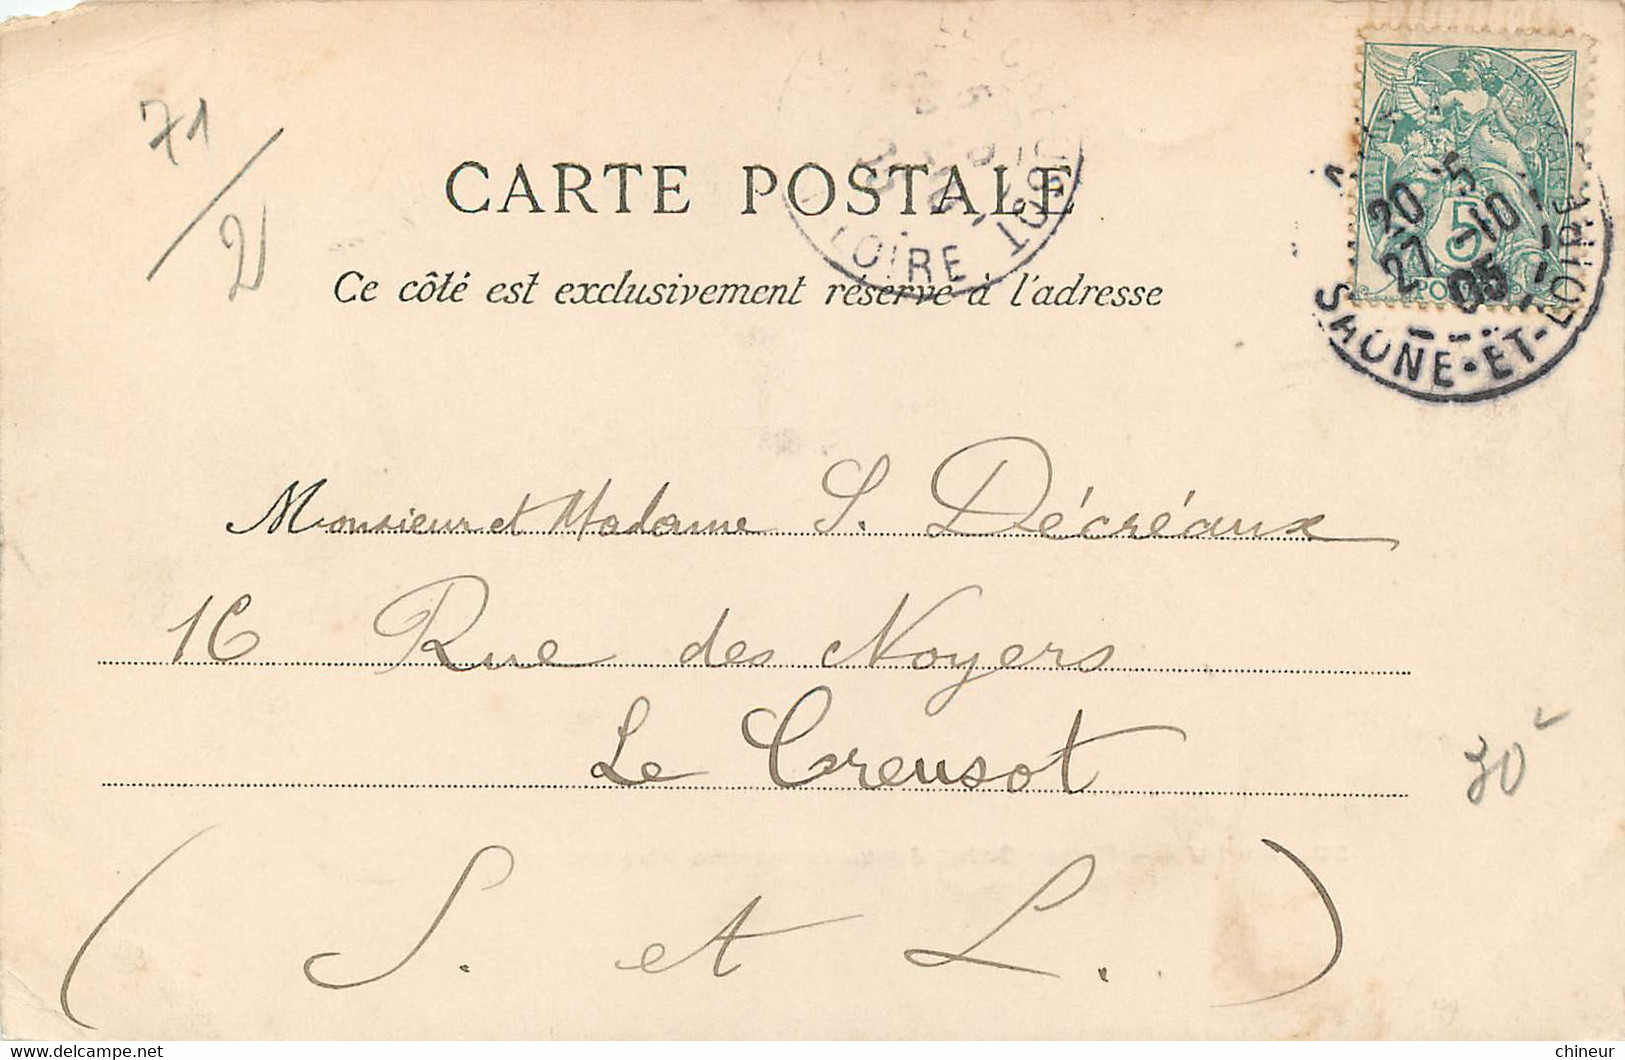 71/2
CARTE POSTALE
Ce côté est exclusivement réservé à l'adresse
LOIRE
FRANÇAISE
5
20 5
27 -10
05
SAONE-ET-LOIRE
Monsieur et Madame S. Décréaux
16 Rue des Noyers
Le Creusot
(S. et L.)
30
chineur